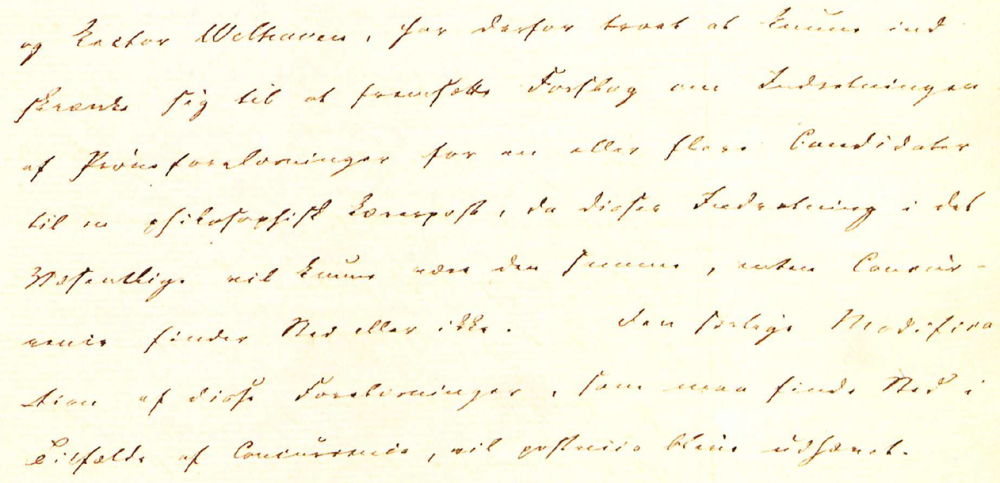 og Lector Welhaven, har derfor troet at kunne ind
skrænke sig til at fremsætte Forslag om Indretningen
af Prøveforelæsninger for en eller flere Candidater
til en philosophisk Lærerpost, da disses Indretning i det
Væsentlige vil kunne være den samme, enten Concur-
rence finder Sted eller ikke. Den særlige Modifica
tion af disse Forelæsninger, som maa finde Sted i
Tilfælde af Concurrence, vil postmiis blive udhævet.